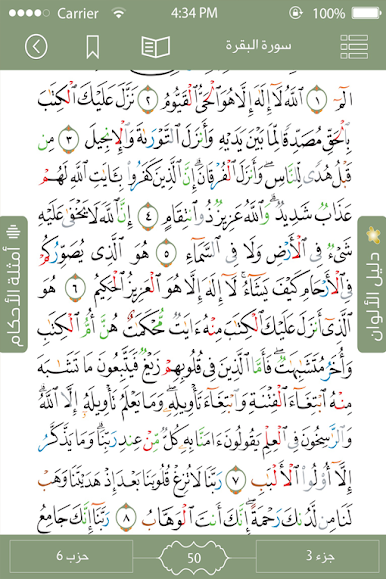 Carrier 4:34 PM 100%
سورة البقرة
الٓمٓ ١ ٱللَّهُ لَآ إِلَٰهَ إِلَّا هُوَ ٱلْحَىُّ ٱلْقَيُّومُ ٢ نَزَّلَ عَلَيْكَ ٱلْكِتَٰبَ
بِٱلْحَقِّ مُصَدِّقًا لِّمَا بَيْنَ يَدَيْهِ وَأَنزَلَ ٱلتَّوْرَىٰةَ وَٱلْإِنجِيلَ ٣ مِن
قَبْلُ هُدًى لِّلنَّاسِ وَأَنزَلَ ٱلْفُرْقَانَ إِنَّ ٱلَّذِينَ كَفَرُوا۟ بِـَٔايَٰتِ ٱللَّهِ لَهُمْ
عَذَابٌ شَدِيدٌ وَٱللَّهُ عَزِيزٌ ذُو ٱنتِقَامٍ ٤ إِنَّ ٱللَّهَ لَا يَخْفَىٰ عَلَيْهِ
شَىْءٌ فِى ٱلْأَرْضِ وَلَا فِى ٱلسَّمَآءِ ٥ هُوَ ٱلَّذِى يُصَوِّرُكُمْ
فِى ٱلْأَرْحَامِ كَيْفَ يَشَآءُ لَآ إِلَٰهَ إِلَّا هُوَ ٱلْعَزِيزُ ٱلْحَكِيمُ ٦ هُوَ
ٱلَّذِىٓ أَنزَلَ عَلَيْكَ ٱلْكِتَٰبَ مِنْهُ ءَايَٰتٌ مُّحْكَمَٰتٌ هُنَّ أُمُّ ٱلْكِتَٰبِ
وَأُخَرُ مُتَشَٰبِهَٰتٌ فَأَمَّا ٱلَّذِينَ فِى قُلُوبِهِمْ زَيْغٌ فَيَتَّبِعُونَ مَا تَشَٰبَهَ
مِنْهُ ٱبْتِغَآءَ ٱلْفِتْنَةِ وَٱبْتِغَآءَ تَأْوِيلِهِۦ وَمَا يَعْلَمُ تَأْوِيلَهُۥٓ إِلَّا ٱللَّهُ
وَٱلرَّٰسِخُونَ فِى ٱلْعِلْمِ يَقُولُونَ ءَامَنَّا بِهِۦ كُلٌّ مِّنْ عِندِ رَبِّنَا وَمَا يَذَّكَّرُ
إِلَّآ أُو۟لُوا۟ ٱلْأَلْبَٰبِ ٧ رَبَّنَا لَا تُزِغْ قُلُوبَنَا بَعْدَ إِذْ هَدَيْتَنَا وَهَبْ
لَنَا مِن لَّدُنكَ رَحْمَةً إِنَّكَ أَنتَ ٱلْوَهَّابُ ٨ رَبَّنَآ إِنَّكَ جَامِعُ
دليل الألوان
أمثلة الأحكام
جزء 3
50
حزب 6